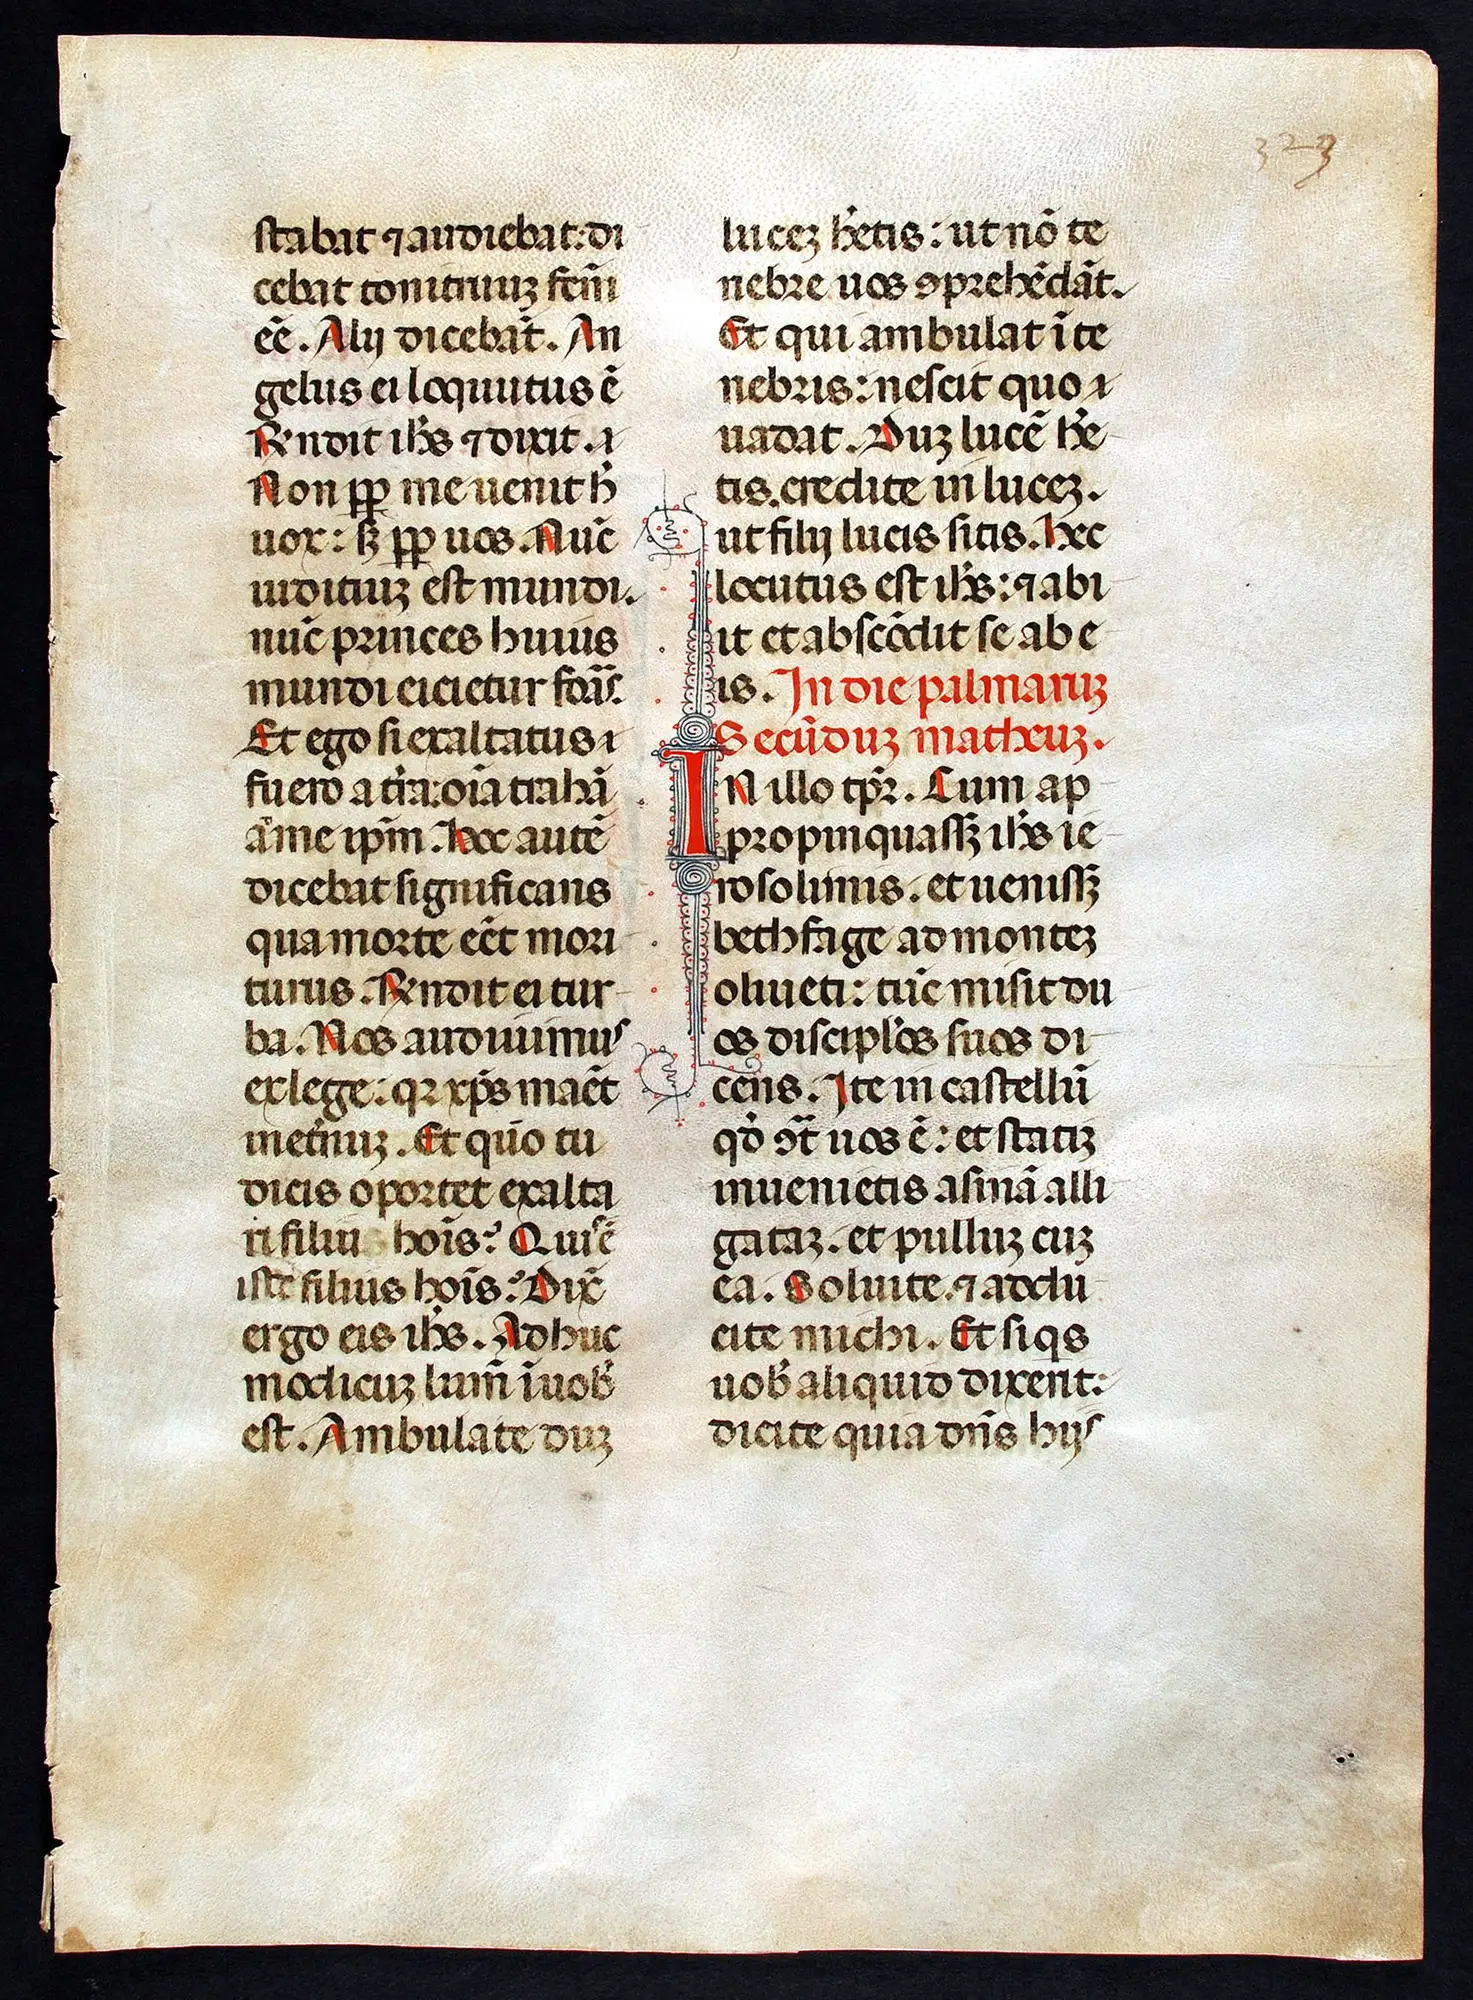 323
stabat ⁊ audiebat: di
cebat tonitruuꝫ fcm̄
ēē. Alij dicebāt. An
gelus ei loquutus ē
R̄ndit ih̄s ⁊ dixit.
Non ꝓꝑ me uenit h̄
uox: sꝫ ꝓꝑ uos. Nūc
iuditiuꝫ est mundi.
nūc princeps huius
mundi eicietur forās.
Et ego si exaltatus
fuero a tr̄a: oīa trahā
ad me ip̄m. Hoc autē
dicebat significans
qua morte eēt mori
turus. R̄ndit ei tur
ba. Nos audiuimus
ex lege: qꝛ xp̄s maēt
in et̄nuꝫ. Et quō tu
dicis oportet exalta
ri filiu hoīs? Quis ē
iste filius hoīs? Dix̄
ergo eis ih̄s. Adhuc
modicuꝫ lum̄ ī uob̄
est. Ambulate duꝫ
luceꝫ h̄etis: ut nō te
nebre uos ꝯprehēdāt.
Et qui ambulat ī te
nebris: nescit quo
uadat. Duꝫ lucē h̄e
tis. credite in luceꝫ.
ut filij lucis sitis. Hec
locutus est ih̄s: ⁊ abi
it et abscōdit se ab e
is. In die palmaruꝫ
Secūduꝫ matheuꝫ.
IN illo tp̄ꝛ. Cum ap
propinquassꝫ ih̄s ie
rosolimis. et uenissꝫ
bethfage ad monteꝫ
oliueti: tūc misit du
os discipl̄os suos di
cens. Ite in castellū
qđ ꝯt̄ uos ē: et statiꝫ
inuenietis asinā alli
gataꝫ. et pulluꝫ cuꝫ
ea. Soluite. ⁊ addu
cite michi. Et si qs
uob̄ aliquid dixerit:
dicite quia dn̄s hijs